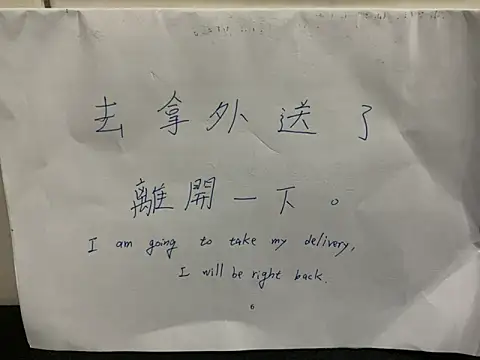 去拿外送了
離開一下。
I am going to take my delivery,
I will be right back.
6